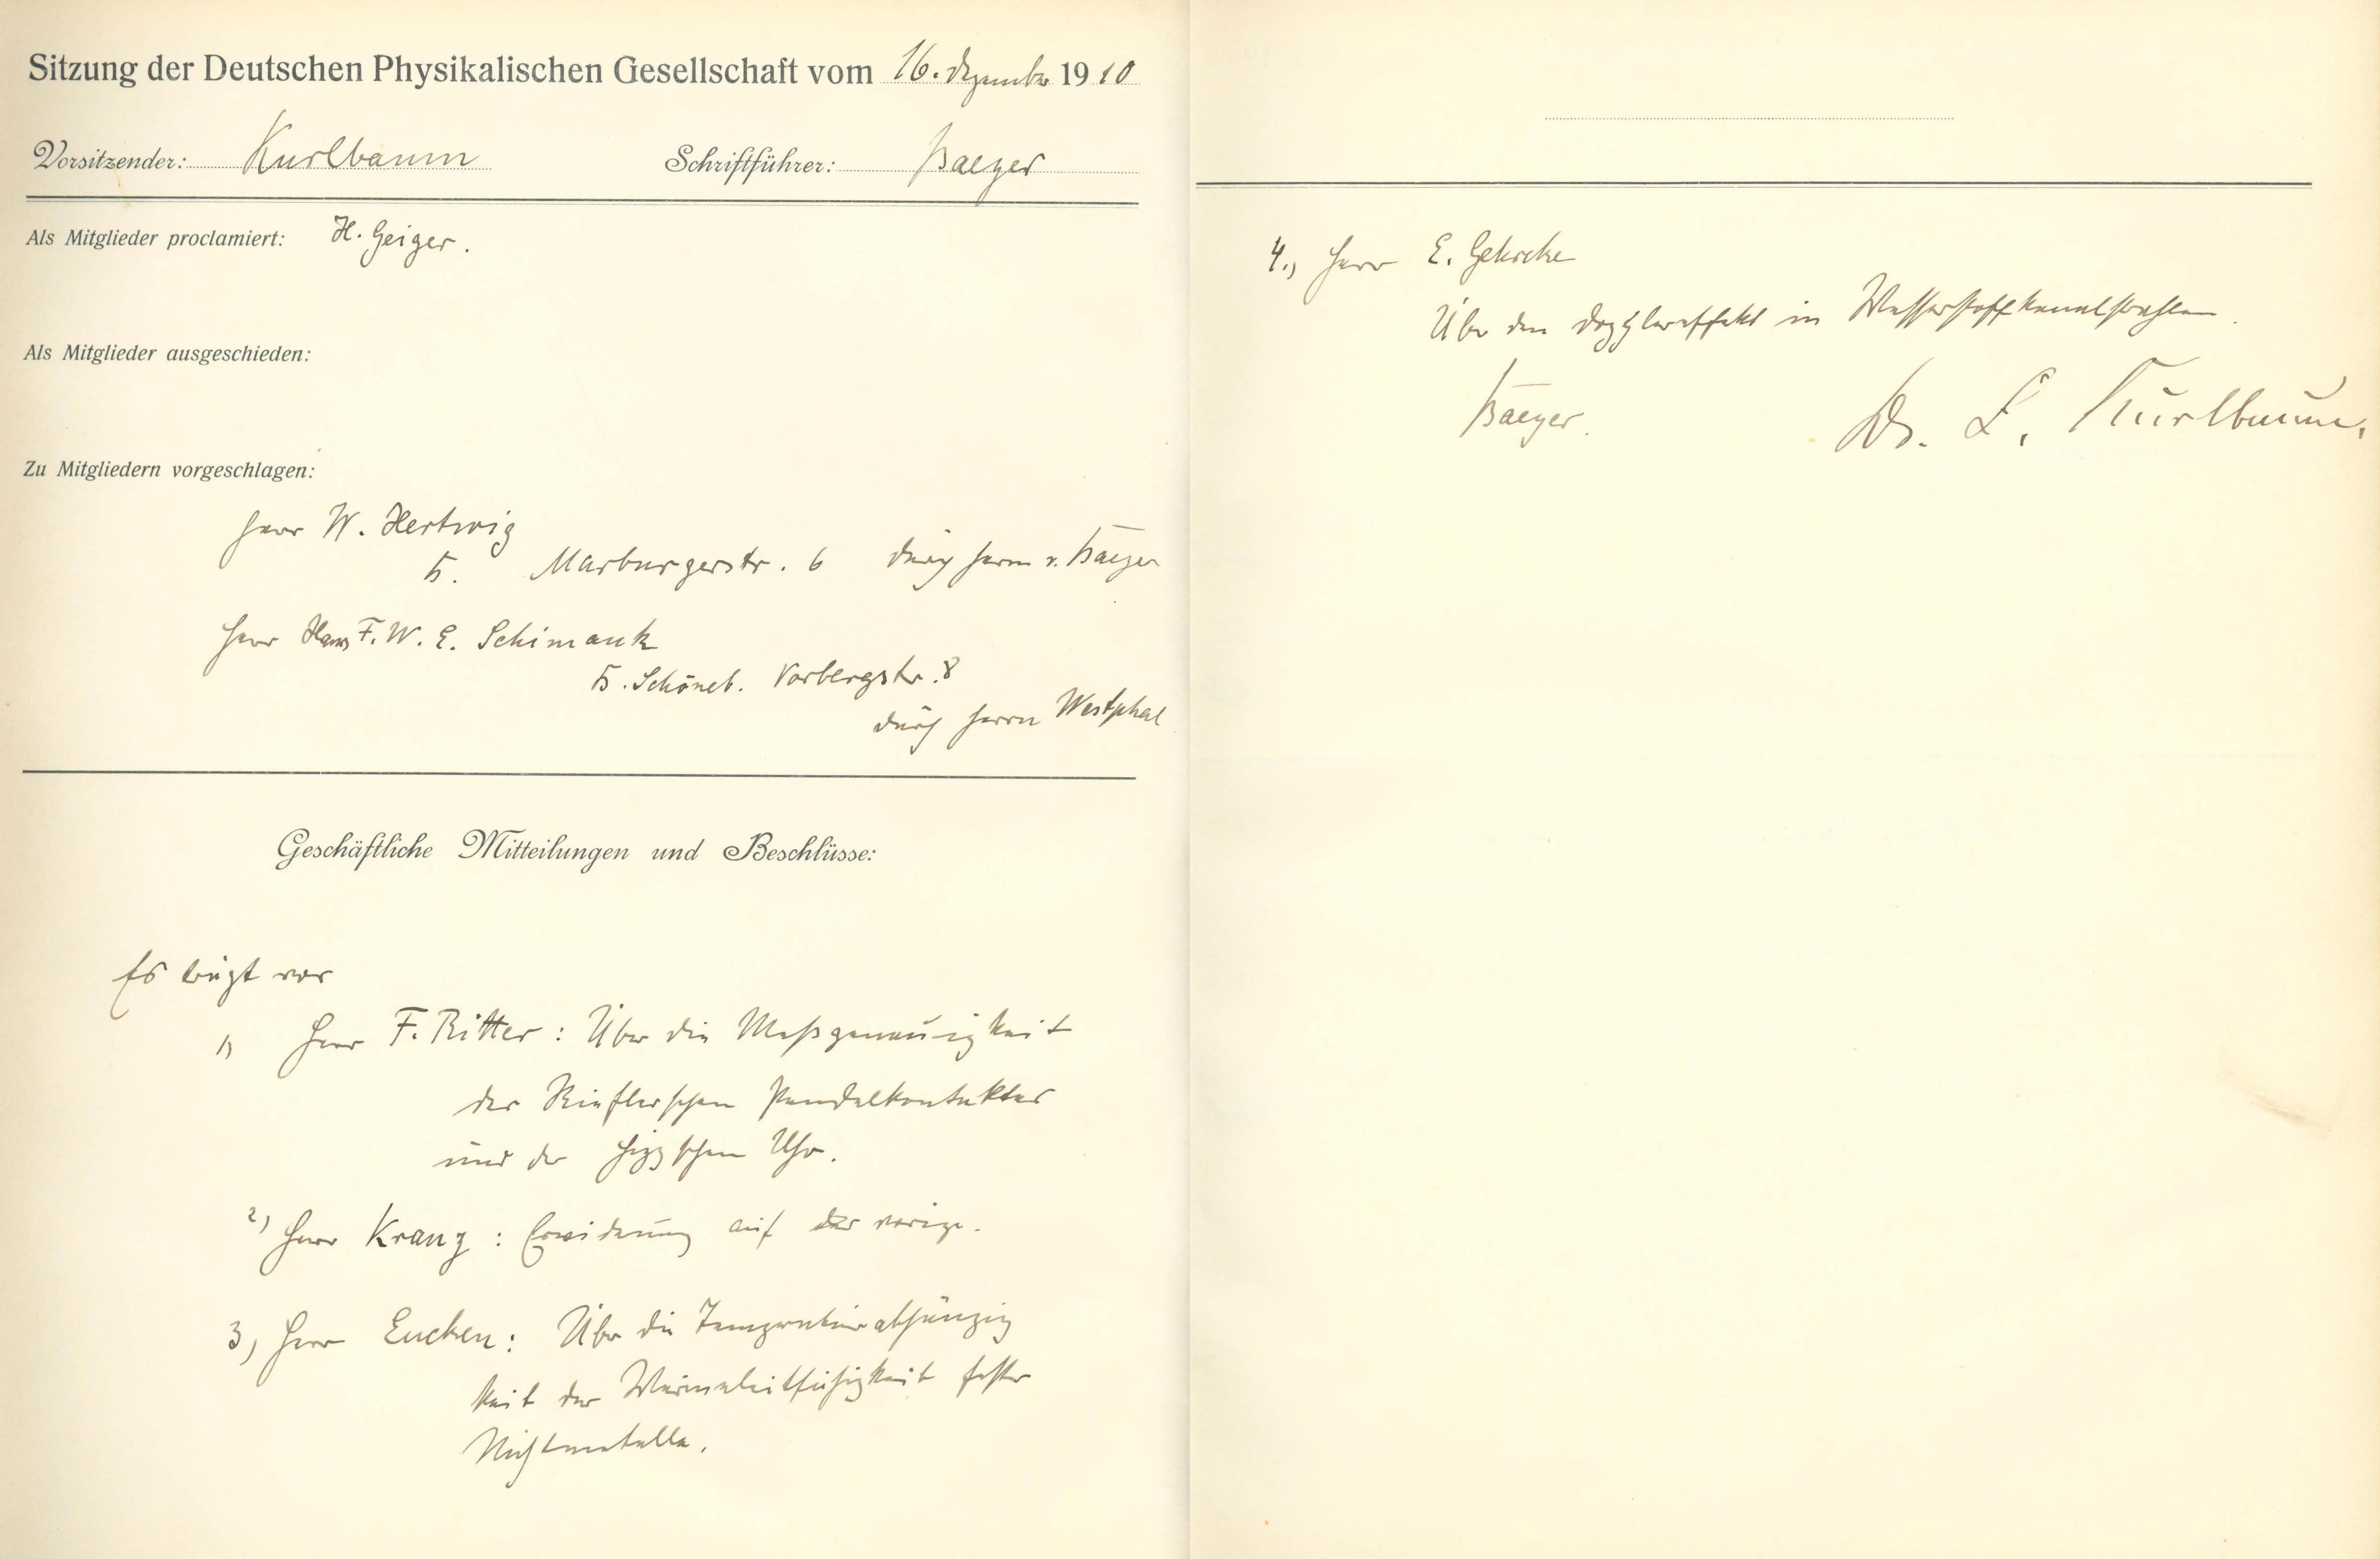 Sitzung der Deutschen Physikalischen Gesellschaft vom 16. Dezember 1910
Vorsitzender: Kurlbaum Schriftführer: Baeyer
Als Mitglieder proclamiert: H. Geiger.
Als Mitglieder ausgeschieden:
Zu Mitgliedern vorgeschlagen:
Herr W. Hertwig
B. Marburgerstr. 6 durch Herrn v. Baeyer
Herr Hans F. W. E. Schimank
B. Schöneb. Vorbergstr. 8
durch Herrn Westphal
Geschäftliche Mitteilungen und Beschlüsse:
Es trägt vor
1) Herr F. Ritter: Über die Meßgenauigkeit
des Rieflerschen Pendelkontaktes
und der Hippschen Uhr.
2) Herr Kranz: Erwiderung auf das vorige.
3) Herr Eucken: Über die Temperaturabhängig
keit der Wärmeleitfähigkeit fester
Nichtmetalle.
4.) Herr E. Gehrcke
Über den Dopplereffekt in Wasserstoffkanalstrahlen.
Baeyer. Dr. F. Kurlbaum.